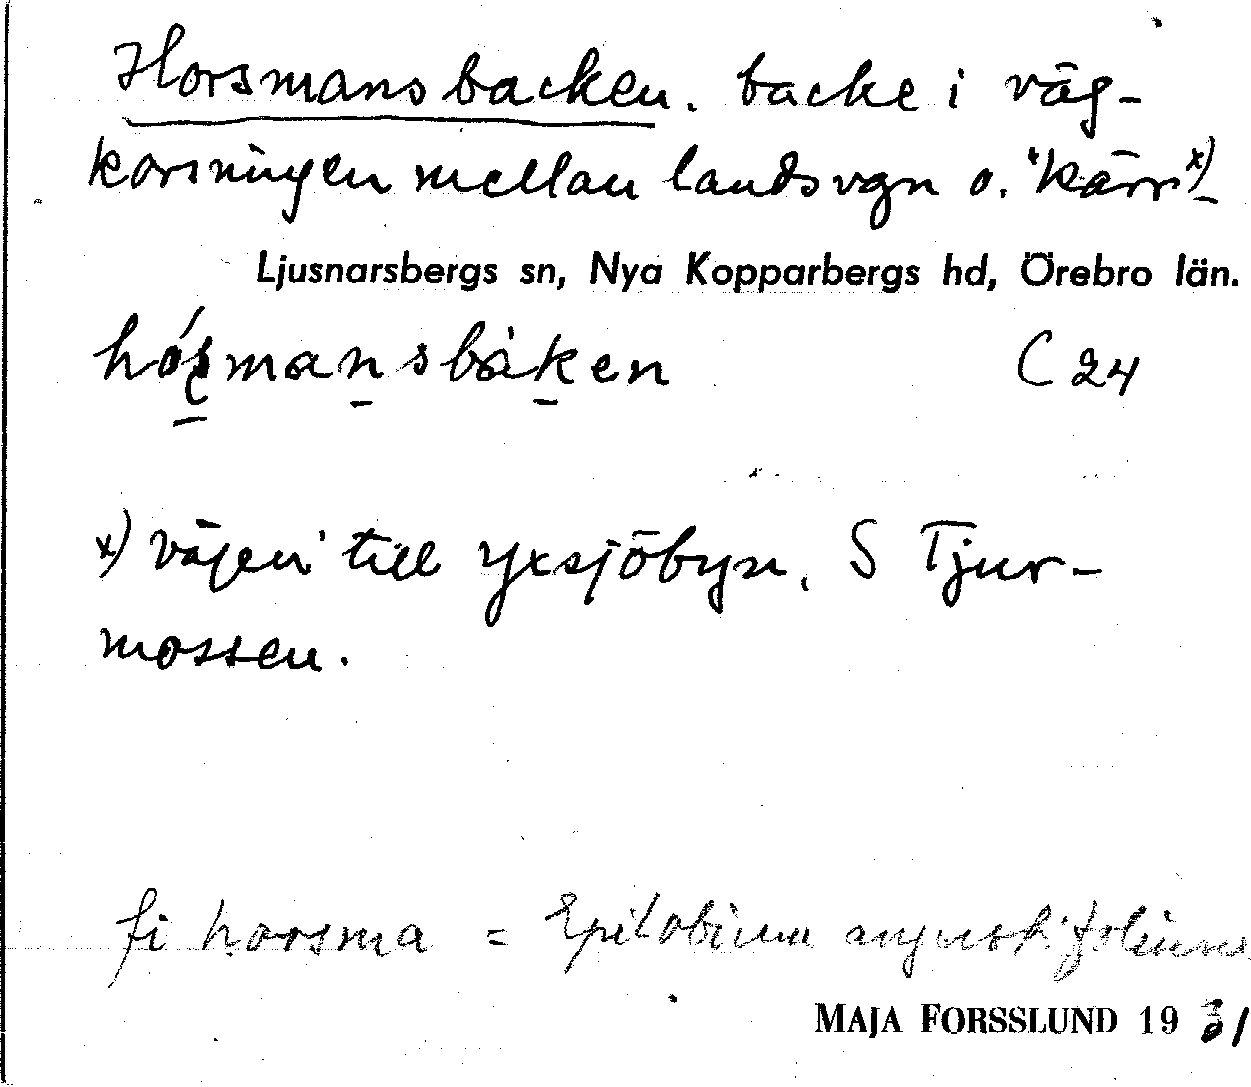 Horsmansbacken. backe i väg-
korsningen mellan landsvgn o. "kärr" x)
Ljusnarsbergs sn, Nya Kopparbergs hd, Örebro län.
mansbàken C 24
x) vägen till Yxsjöbyn, S Tjur-
mossen.
fi horsma = Epilobium angustifolium
MAJA FORSSLUND 19 31